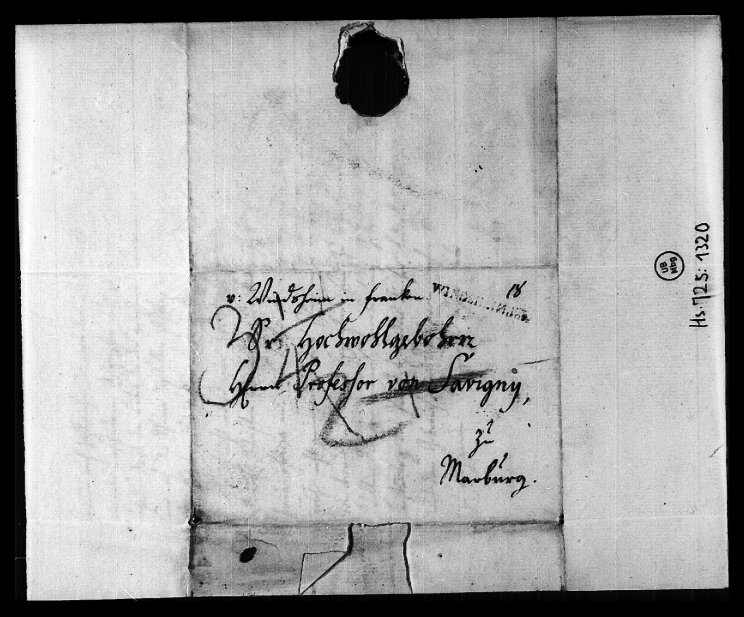 v: Windsheim in Franken 18
Sr. Hochwohlgebohren
Herrn Professor von Savigny,
zu
Marburg.
UB
Mbg
Hs. 725: 1320